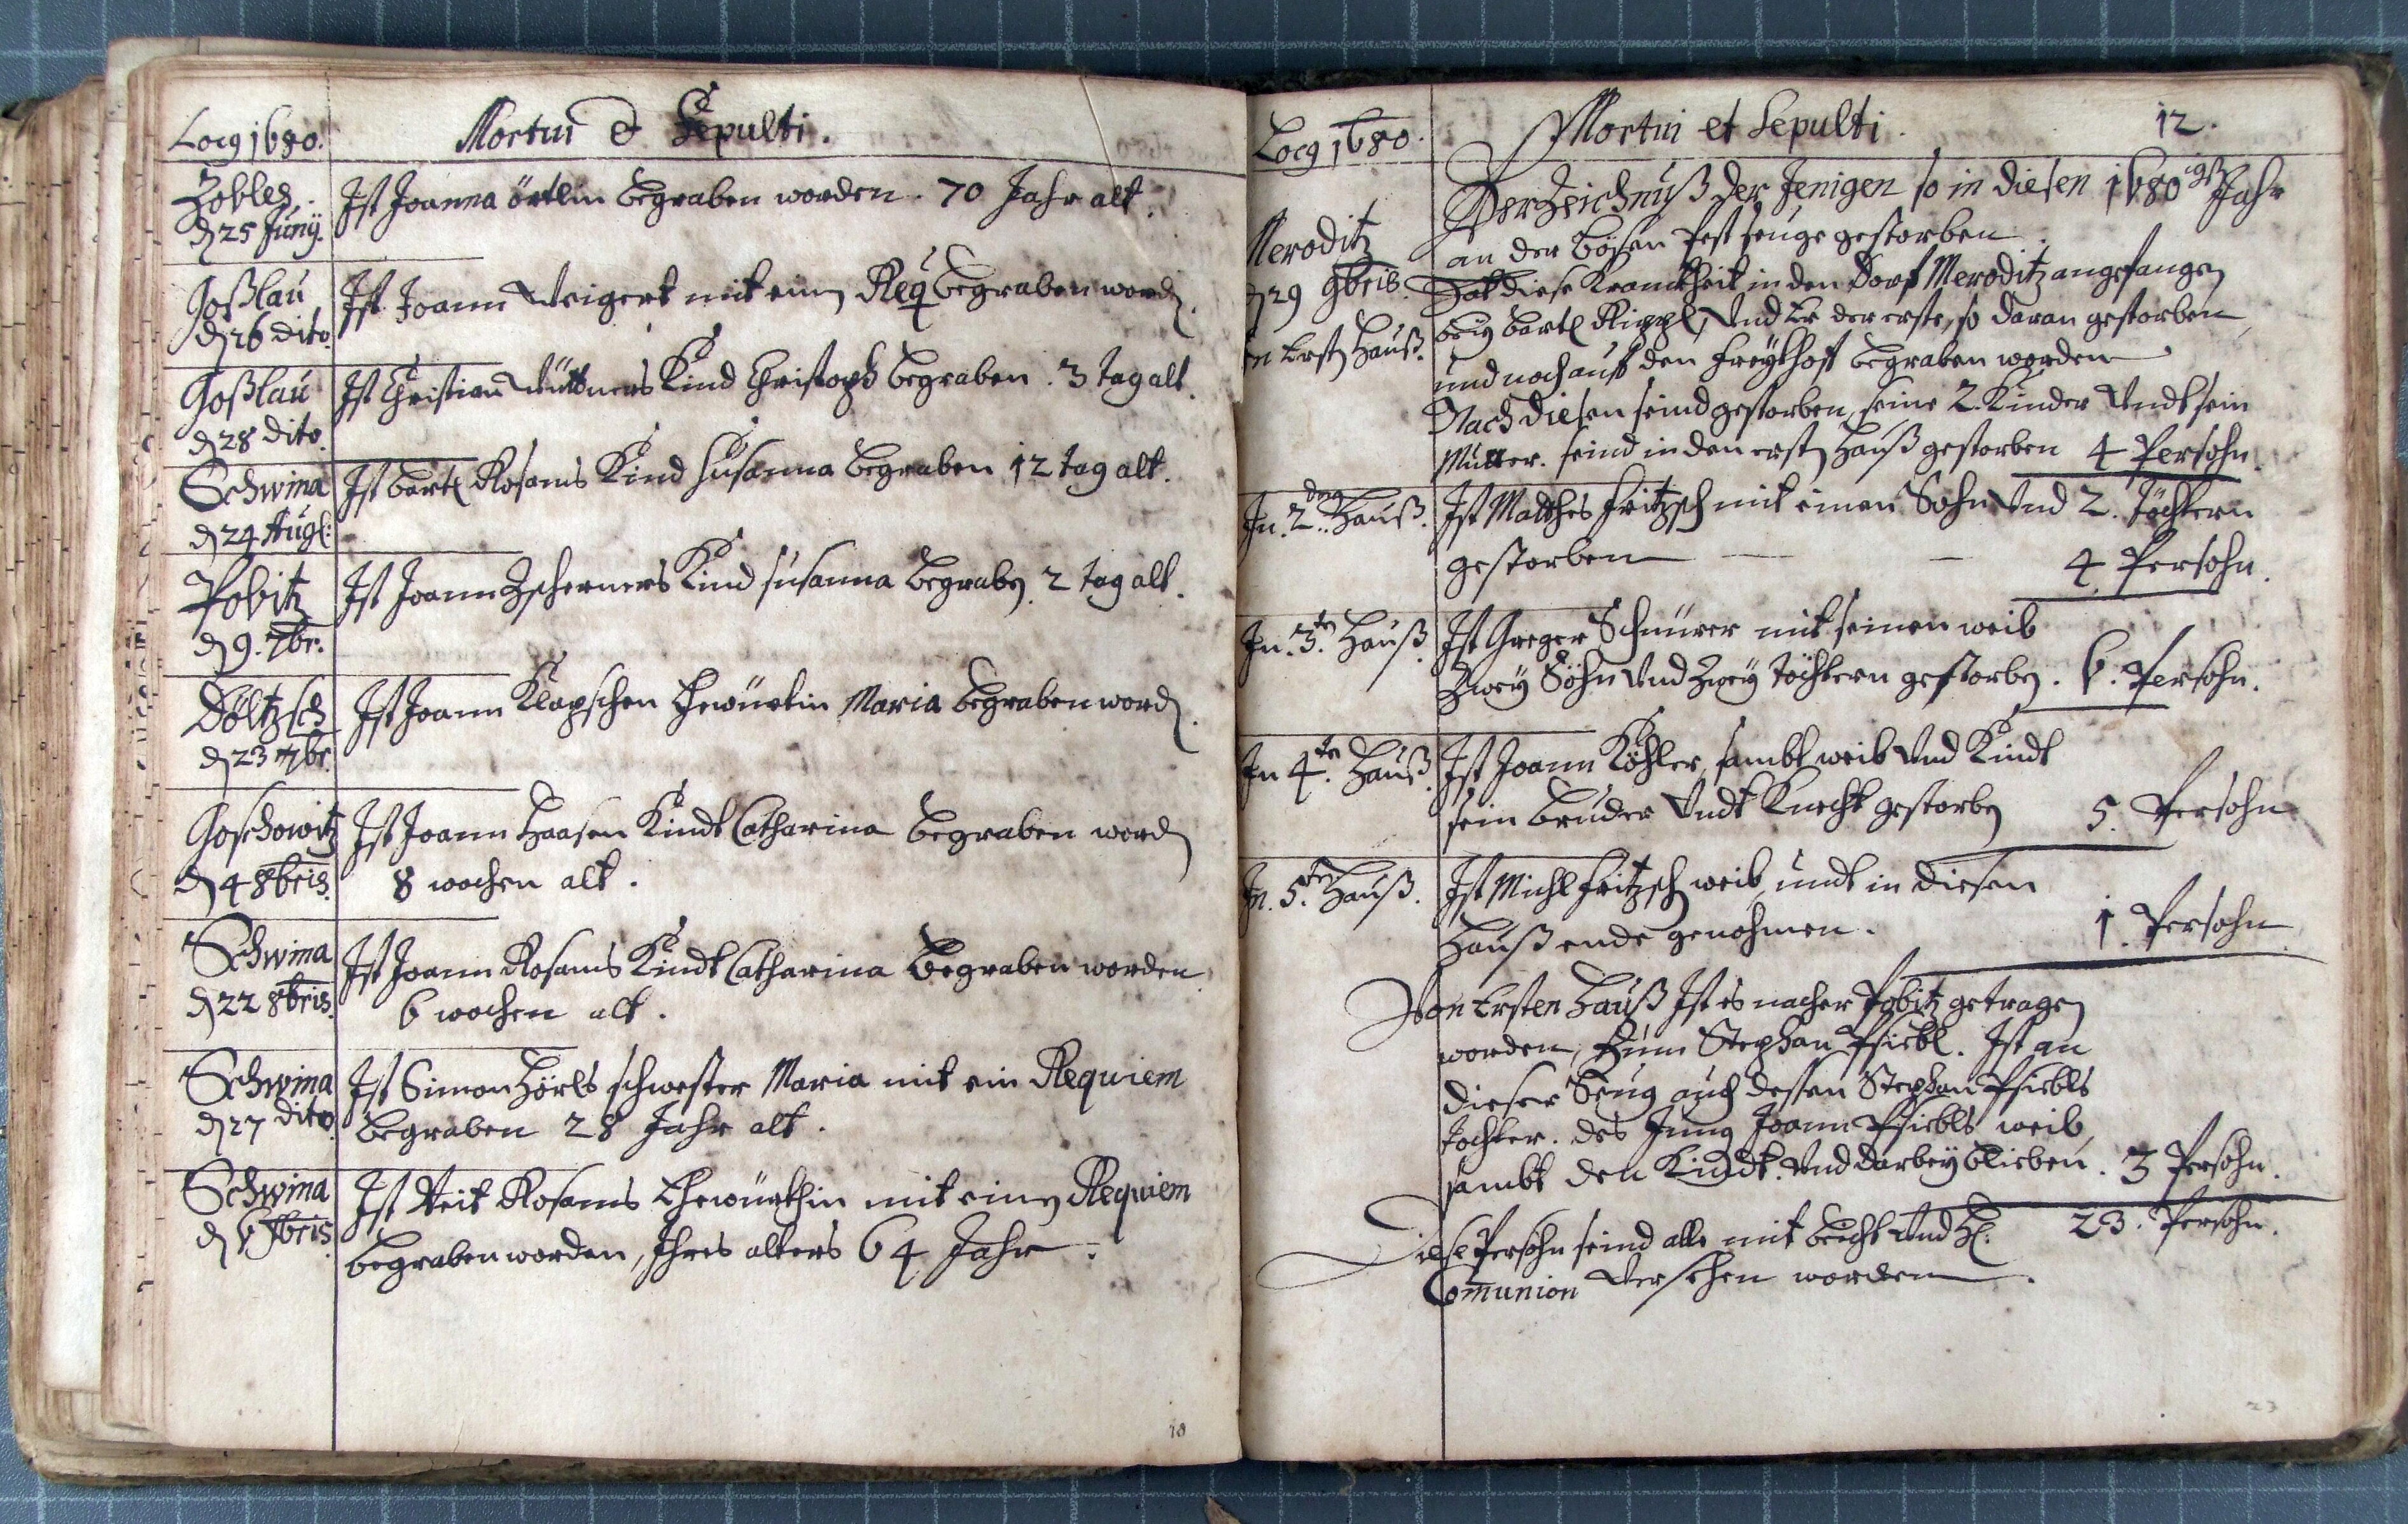 Locg 1680.
Mortui et Sepulti.
Zobles
d 25 Juny.
Ist Joanna örtlin begraben worden. 70 Jahr alt.
Goßlau
d 26 dito.
Ist Joann Weigert mit einn Req begraben word
Goßlau
d 28 dito.
Ist Christian Büttners Kind Christoph begraben. 3 tag alt.
Schwina
d 24 Aug:
Ist Bartl Rosams Kind Susanna begraben 12 tag alt.
Pobitz
d 9. 7br.
Ist Joann Zscherners Kind Susanna begraben. 2 tag alt.
Döltzsch
d 23 7br.
Ist Joann Klapschen Ehewürtin Maria begraben word.
Goschowitz
d 4 8bris.
Ist Joann Haasen Kindt Catharina begraben word
8 wochen alt.
Schwina
d 22 8bris.
Ist Joann Rosams Kindt Catharina begraben worden
6 wochen alt.
Schwina
d 27 dito
Ist Simon Hörls schwester Maria mit ein Requiem
begraben 28 Jahr alt.
Schwina
d 6 9bris
Ist Veit Rosams Ehewürthin mit einen Requiem
begraben worden, Ihres alters 64 Jahr.
18
Locg 1680.
Mortui et Sepulti.
12.
Verzeichnuß der Jenigen so in diesen 1680igst Jahr
an der bösen Pest seuge gestorben
Meroditz
d 29 9bris.
Hat diese Kranckheit in den Dorf Meroditz angefangen
In Erst Hauß.
bey Bartl Rippl, Vnd Er der erste, so daran gestorben
und noch auff den Freythoff begraben worden
Nach diesen seind gestorben, seine 2. Kinder Vndt sein
Mutter. seind in den erst Hauß gestorben 4 Persohn.
In. 2. den Hauß.
Ist Matthes Fritzsch mit einen Sohn Vnd 2. töchtern
gestorben — — 4 Persohn.
In. 3. ten Hauß
Ist Greger Schnürer mit seinen weib
Zwey Söhn Vnd Zwey töchtern gestorben. 6. Persohn.
In 4. ten Hauß.
Ist Joann Köhler, sambt weib Vnd Kindt
sein bruder Vndt Knecht gestorben 5. Persohn
In. 5. ten Hauß.
Ist Michl Fritzsch weib, undt in diesen
Hauß ende genohmen. 1. Persohn
Von Ersten Hauß Ist es nacher Pobitz getragen
worden, Zum Stephan Pfiebl. Ist an
dieser Seug auch dessen Stephan Pfiebls
tochter. des Jung Joann Pfiebls weib
sambt den Kindt. Vnd darbey blieben. 3 Persohn.
Diese Persohn seind alle mit beicht Vnd Hl. 23. Persohn.
Comunion Versehen worden.
23